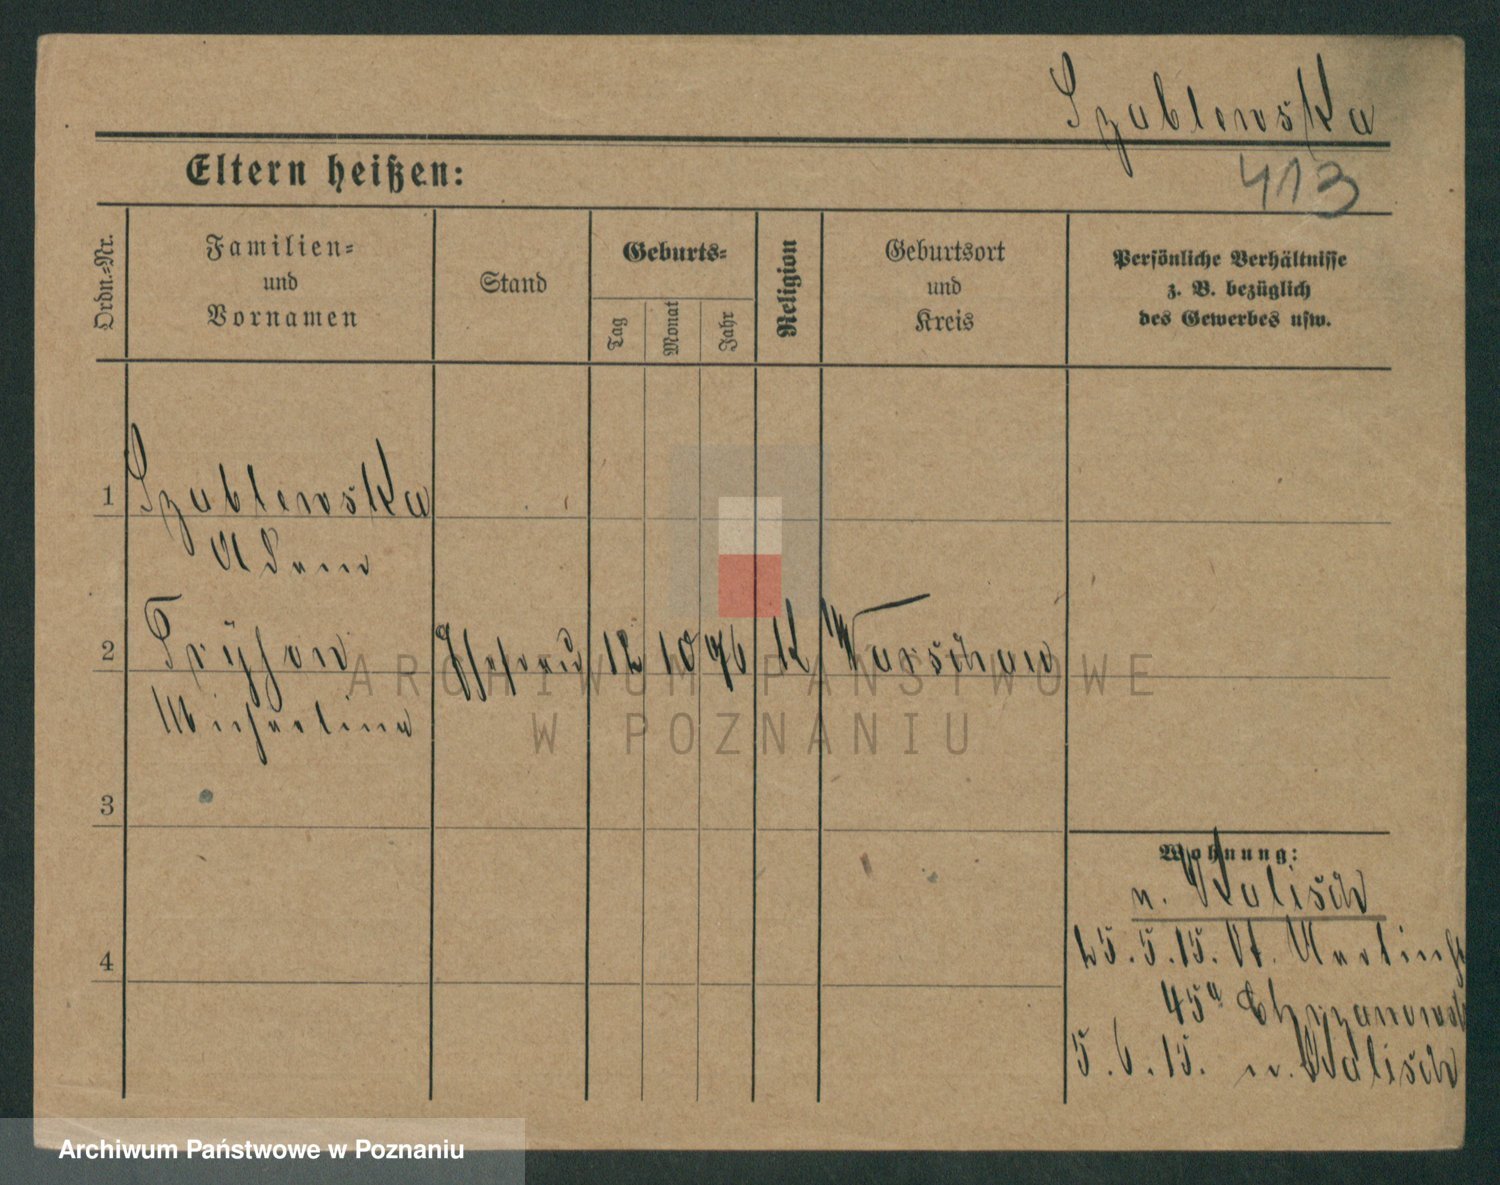 Szablewska
413
Eltern heißen:
Ordn.=Nr.
Familien=
und
Vornamen
Stand
Geburts=
Tag
Monat
Jahr
Religion
Geburtsort
und
Kreis
Persönliche Verhältnisse
z. B. bezüglich
des Gewerbes usw.
1
Szablewska
Adam
2
12 10 76 K Warschau
Michalina
3
4
Wohnung:
n. Kalisch
25.5.15.
45a Chrzanowsk
5.6.15. n. Kalisch
ARCHIWUM PAŃSTWOWE
W POZNANIU
Archiwum Państwowe w Poznaniu